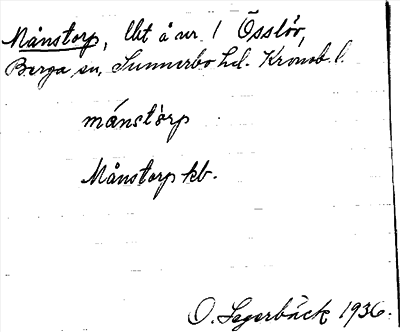 Månstorp, lht å nr 1 Össlöv,
Berga sn, Sunnerbo hd. Kronob. l.
månstòrp
Månstorp kb.
O. Lagerbäck 1936.